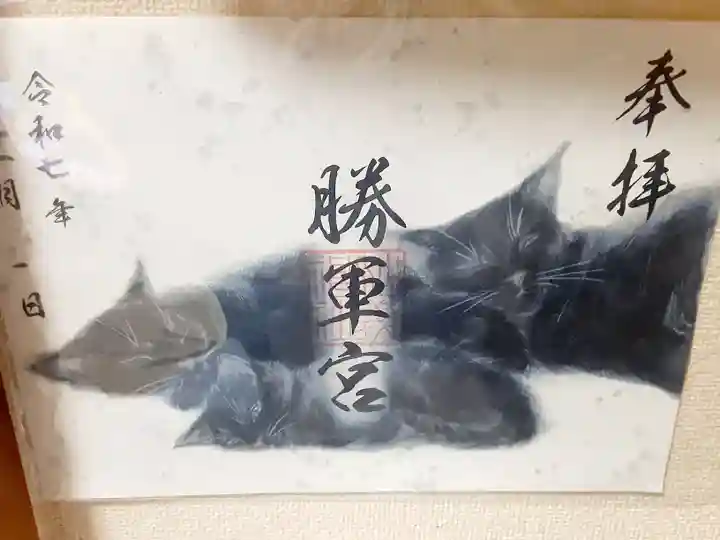 奉拝
勝軍宮
令和七年
二月一日